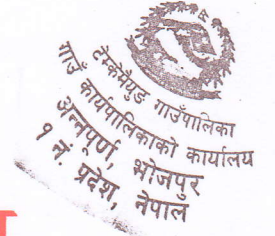 टेम्केमैयुङ गाउँपालिका
गाउँ कार्यपालिकाको कार्यालय
अन्नपूर्ण, भोजपुर
१ नं. प्रदेश, नेपाल